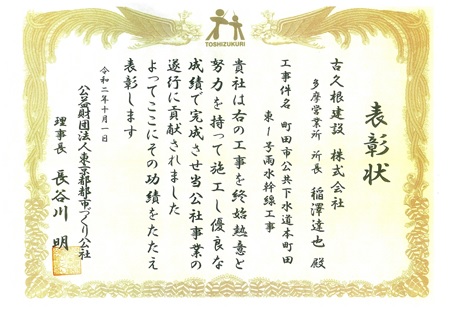 TOSHIZUKURI
表彰状
古久根建設 株式会社
多摩営業所 所長 稲澤達也 殿
工事件名 町田市公共下水道本町田
東1号雨水幹線工事
貴社は右の工事を終始熱意と
努力を持って施工し優良な
成績で完成させ当公社事業の
遂行に貢献されました
よってここにその功績をたたえ
表彰します
令和二年十月一日
公益財団法人東京都都市づくり公社
理事長 長谷川 明